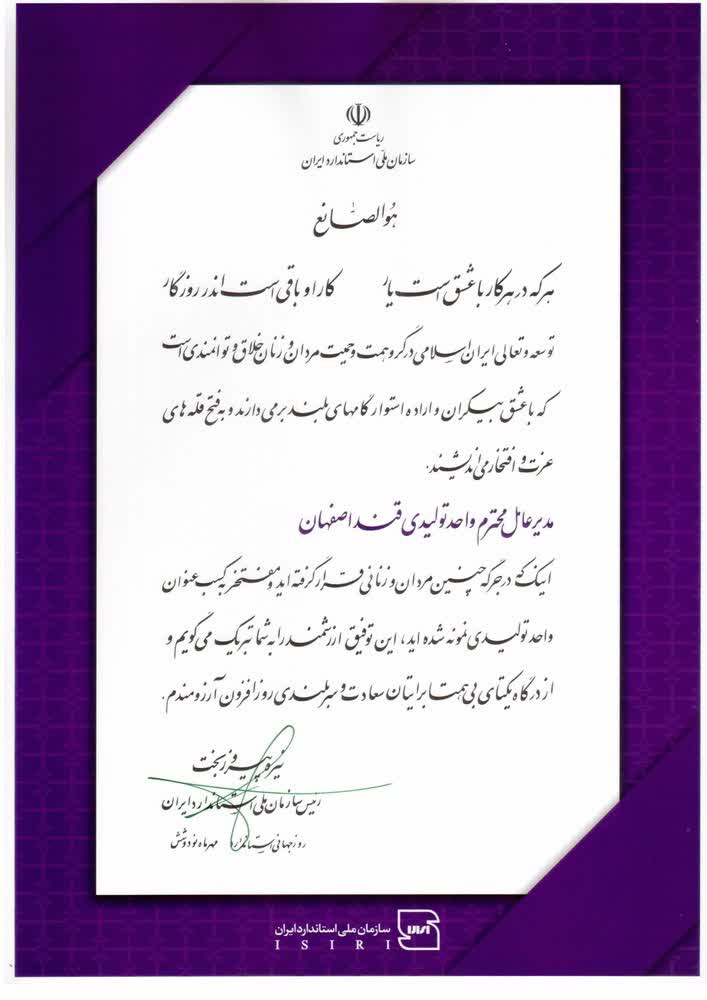 ریاست جمهوری
سازمان ملّی استاندارد ایران
هُوالصّانع
هر که در هر کار با عشق است یار کار او باقی است اندر روزگار
توسعه و تعالی ایران اسلامی در گرو همت و حمیت مردان و زنان خلاق و توانمندی است
که با عشق بیکران و اراده استوار گامهای بلند بر می دارند و به فتح قله های
عزت و افتخار می اندیشند.
مدیرعامل محترم واحد تولیدی قند اصفهان
اینک که در جرگه چنین مردان و زنانی قرار گرفته اید و مفتخر به کسب عنوان
واحد تولیدی نمونه شده اید، این توفیق ارزشمند را به شما تبریک می گویم و
از درگاه یکتای بی همتا برایتان سعادت و سربلندی روزافزون آرزومندم.
نیره پیروزبخت
رئیس سازمان ملی استاندارد ایران
روز جهانی استاندارد مهرماه نود و شش
سازمان ملی استاندارد ایران
I S I R I